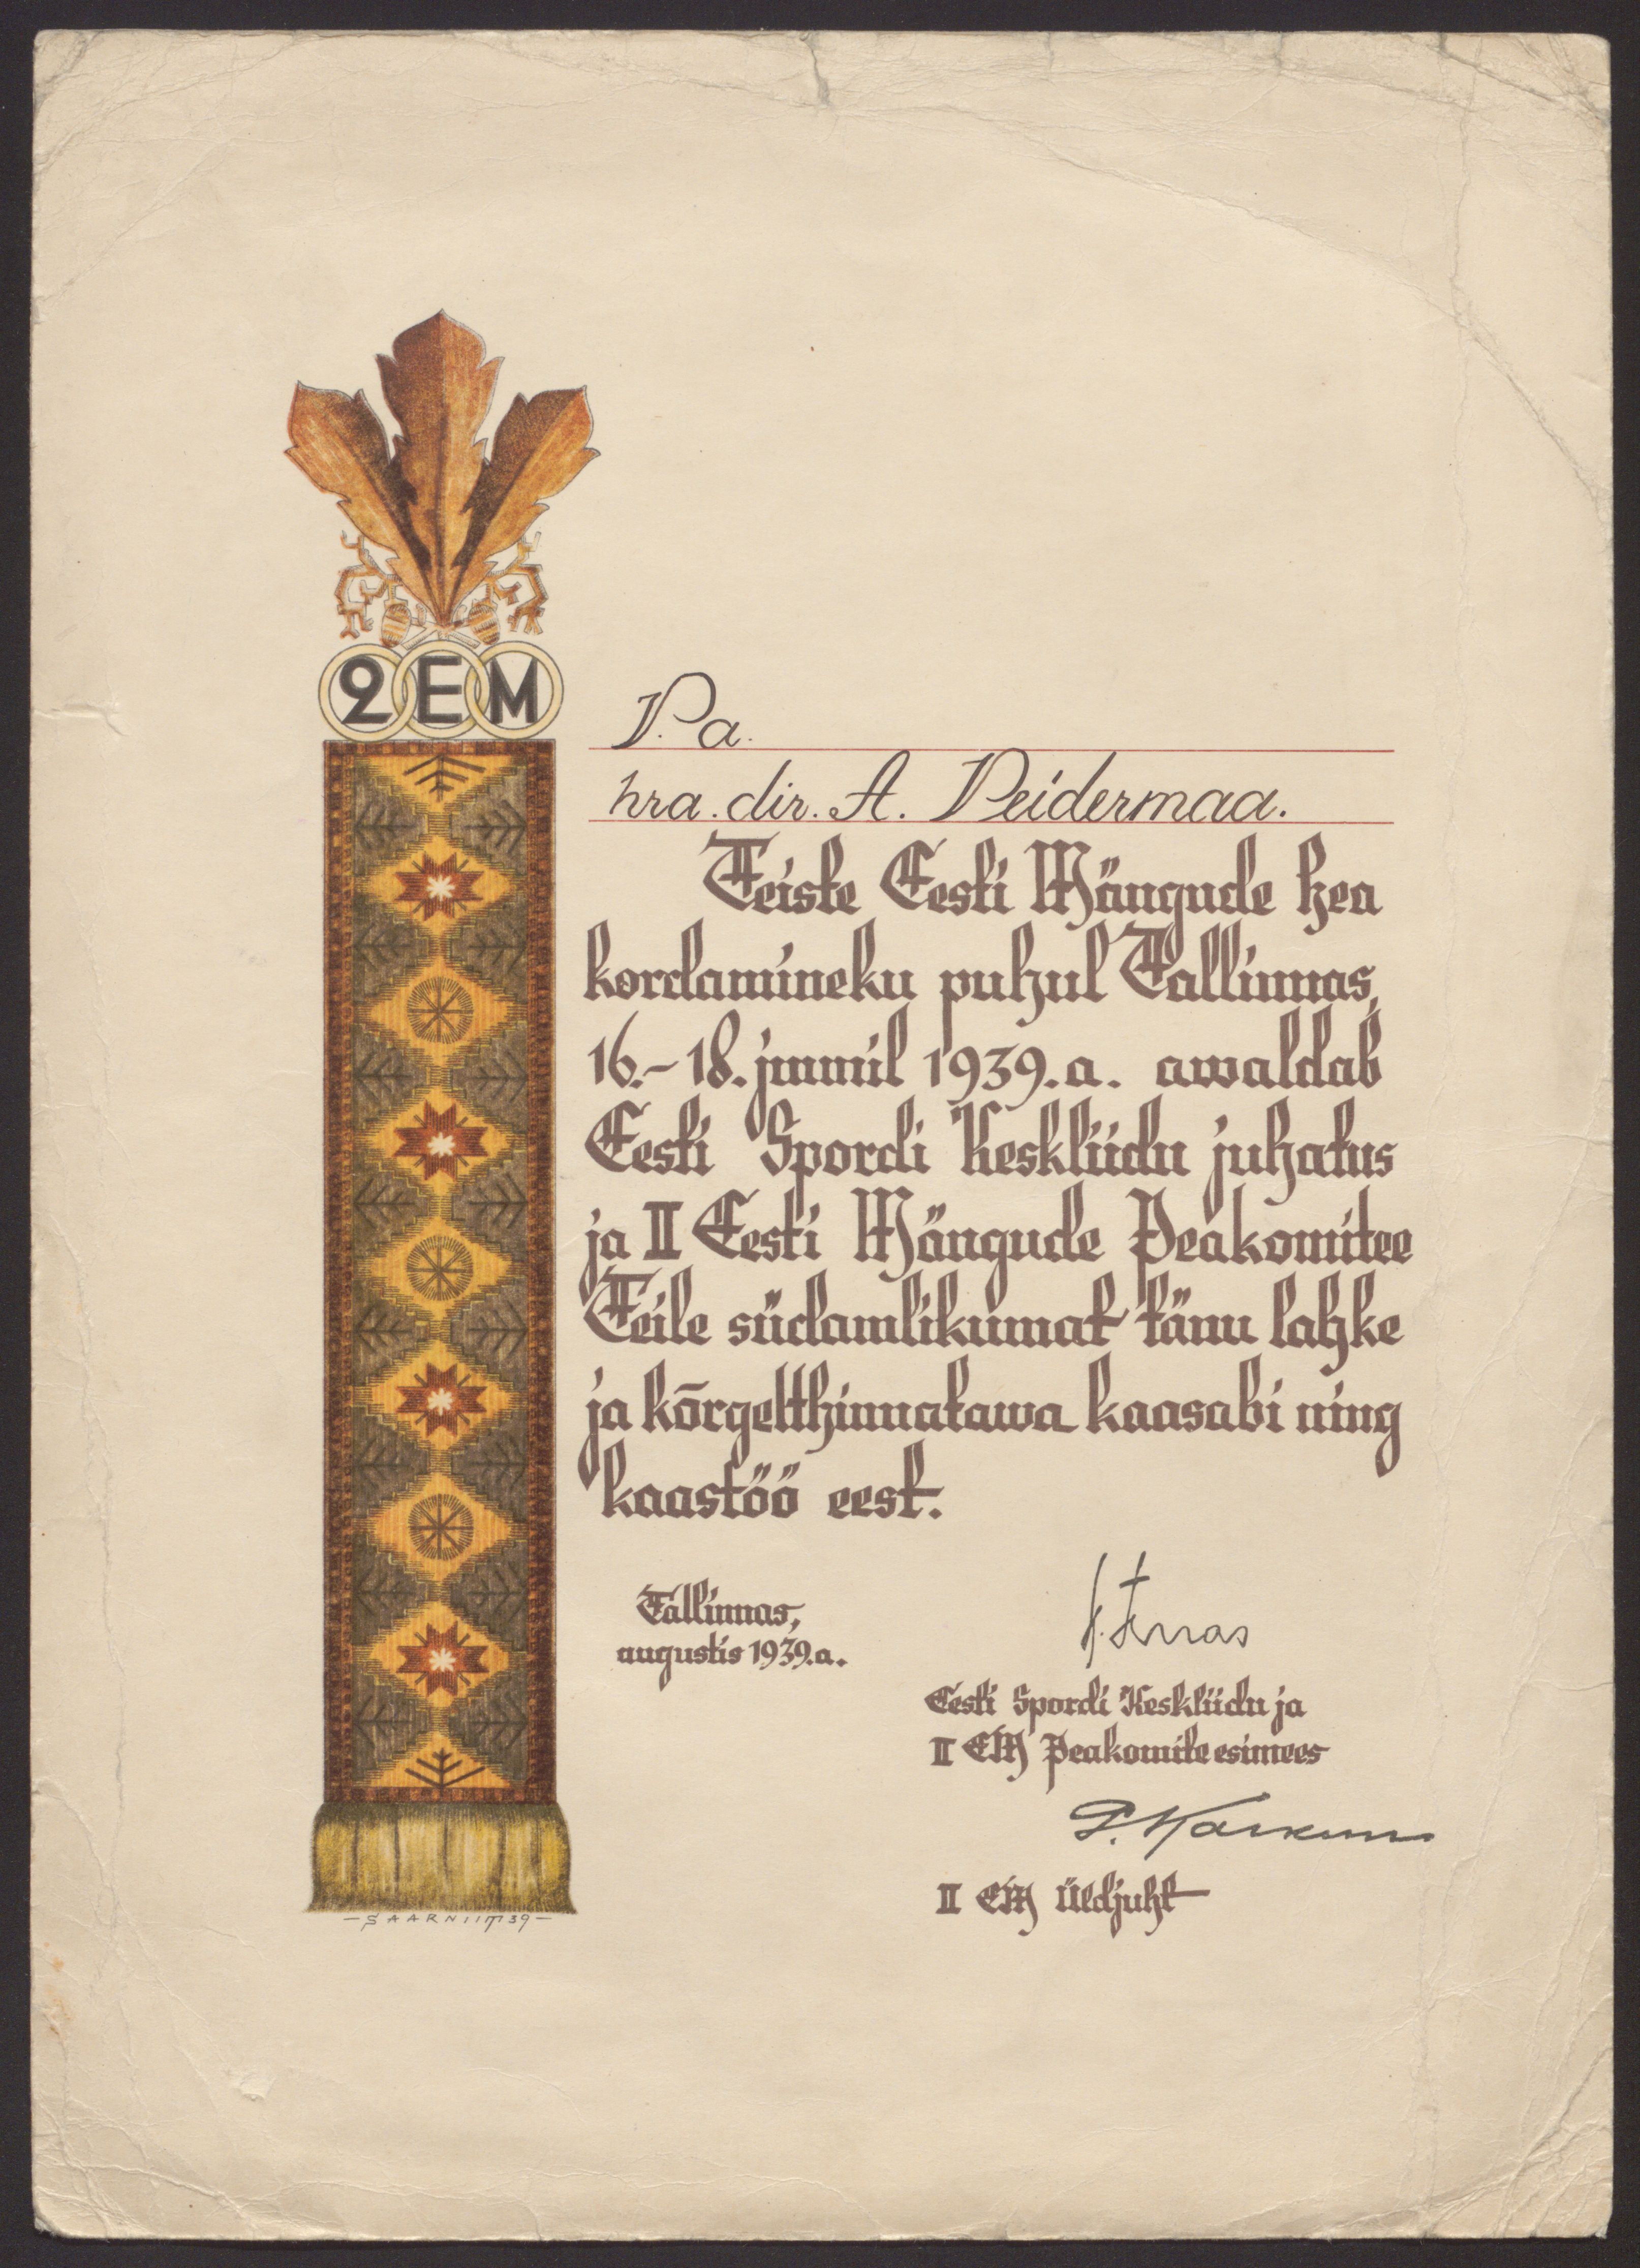 2 E M
V. a.
hra. dir. A. Veidermaa.
Teiste Eesti Mängude hea
kordamineku puhul Tallinnas,
16.-18. juunil 1939. a. awaldab
Eesti Spordi Keskliidu juhatus
ja II Eesti Mängude Peakomitee
Teile südamlikumat tänu lahke
ja kõrgelthinnatawa kaasabi ning
kaastöö eest.
Tallinnas,
augustis 1939. a.
Eesti Spordi Keskliidu ja
II EM Peakomitee esimees
II EM Üldjuht
- SAARNIIT 39 -